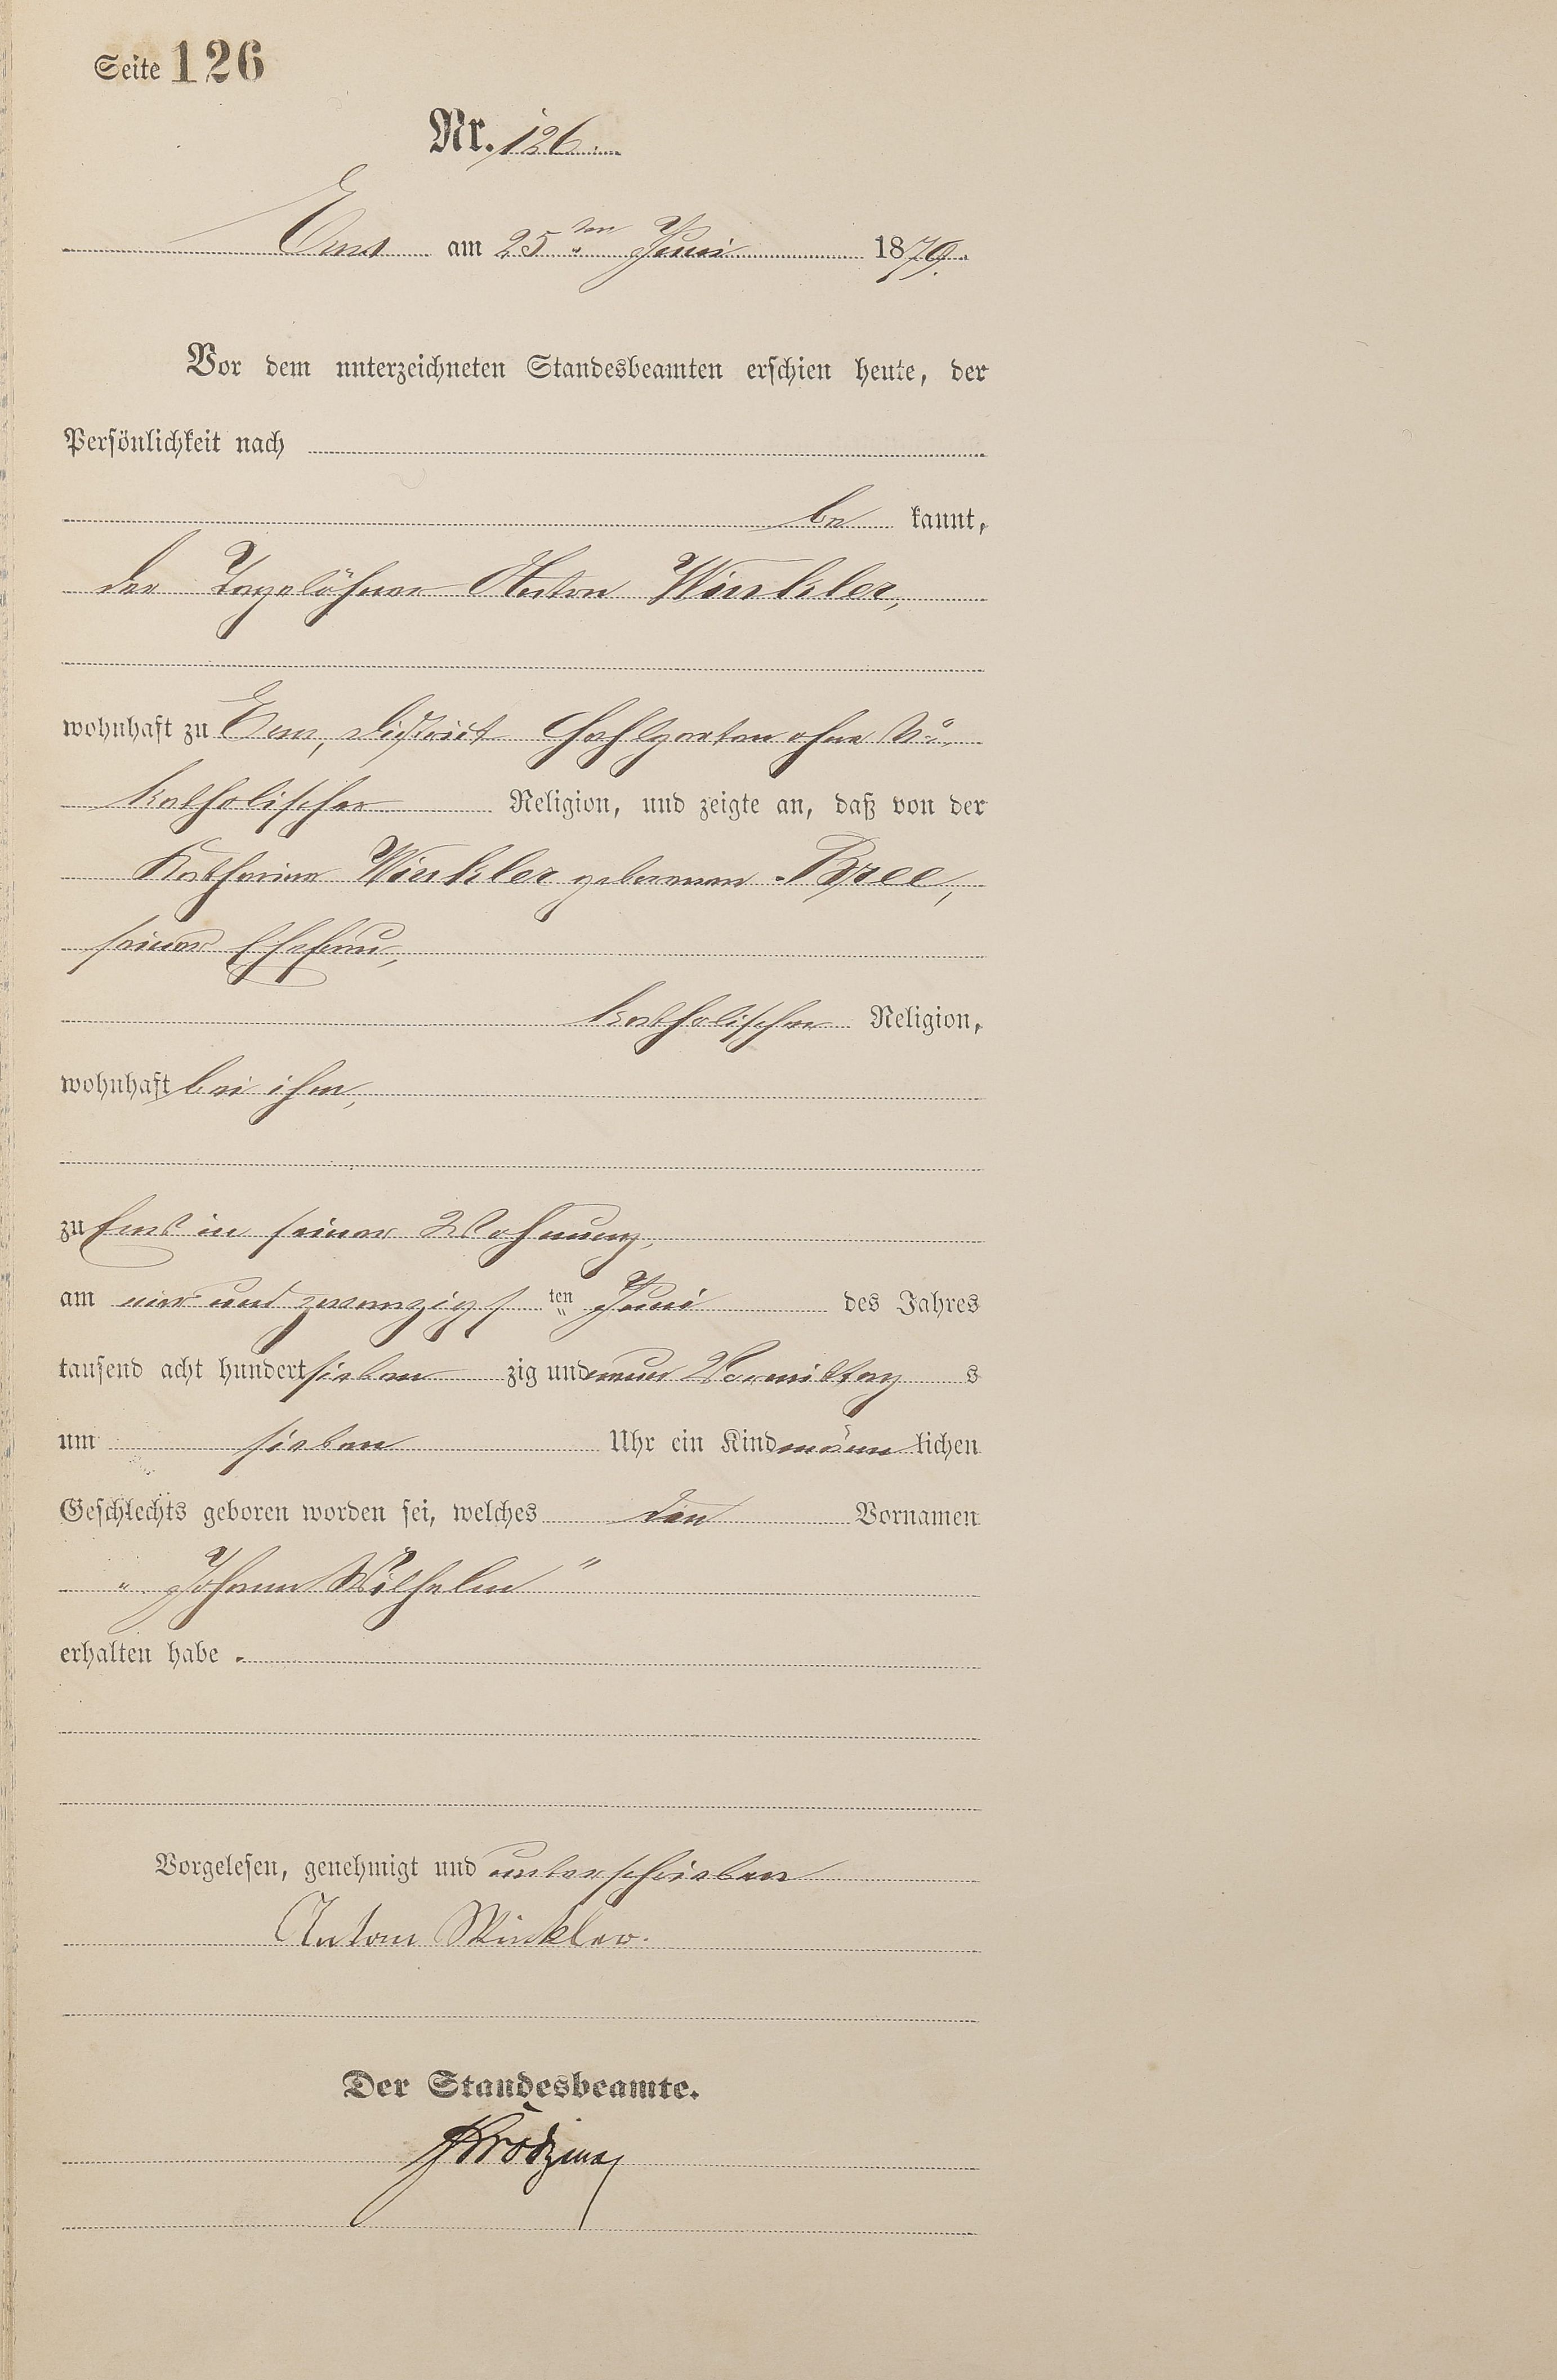 Seite 126
Nr. 126.
Ems am 25ten Juni 1879.
Vor dem unterzeichneten Standesbeamten erschien heute, der
Persönlichkeit nach
be kannt,
der Tagelöhner Anton Winkler,
wohnhaft zu Ems, District ohne No.,
katholischer Religion, und zeigte an, daß von der
Katharina Winkler geborenen Bree,
seiner Ehefrau,
katholischer Religion,
wohnhaft bei ihm,
zu Ems in seiner Wohnung,
am vier und zwanzigs ten Juni des Jahres
tausend acht hundert sieben zig und neun Vormittag s
um sieben Uhr ein Kind männ lichen
Geschlechts geboren worden sei, welches den Vornamen
„Johann Wilhelm"
erhalten habe.
Vorgelesen, genehmigt und unterschrieben
Anton Winkler.
Der Standesbeamte.